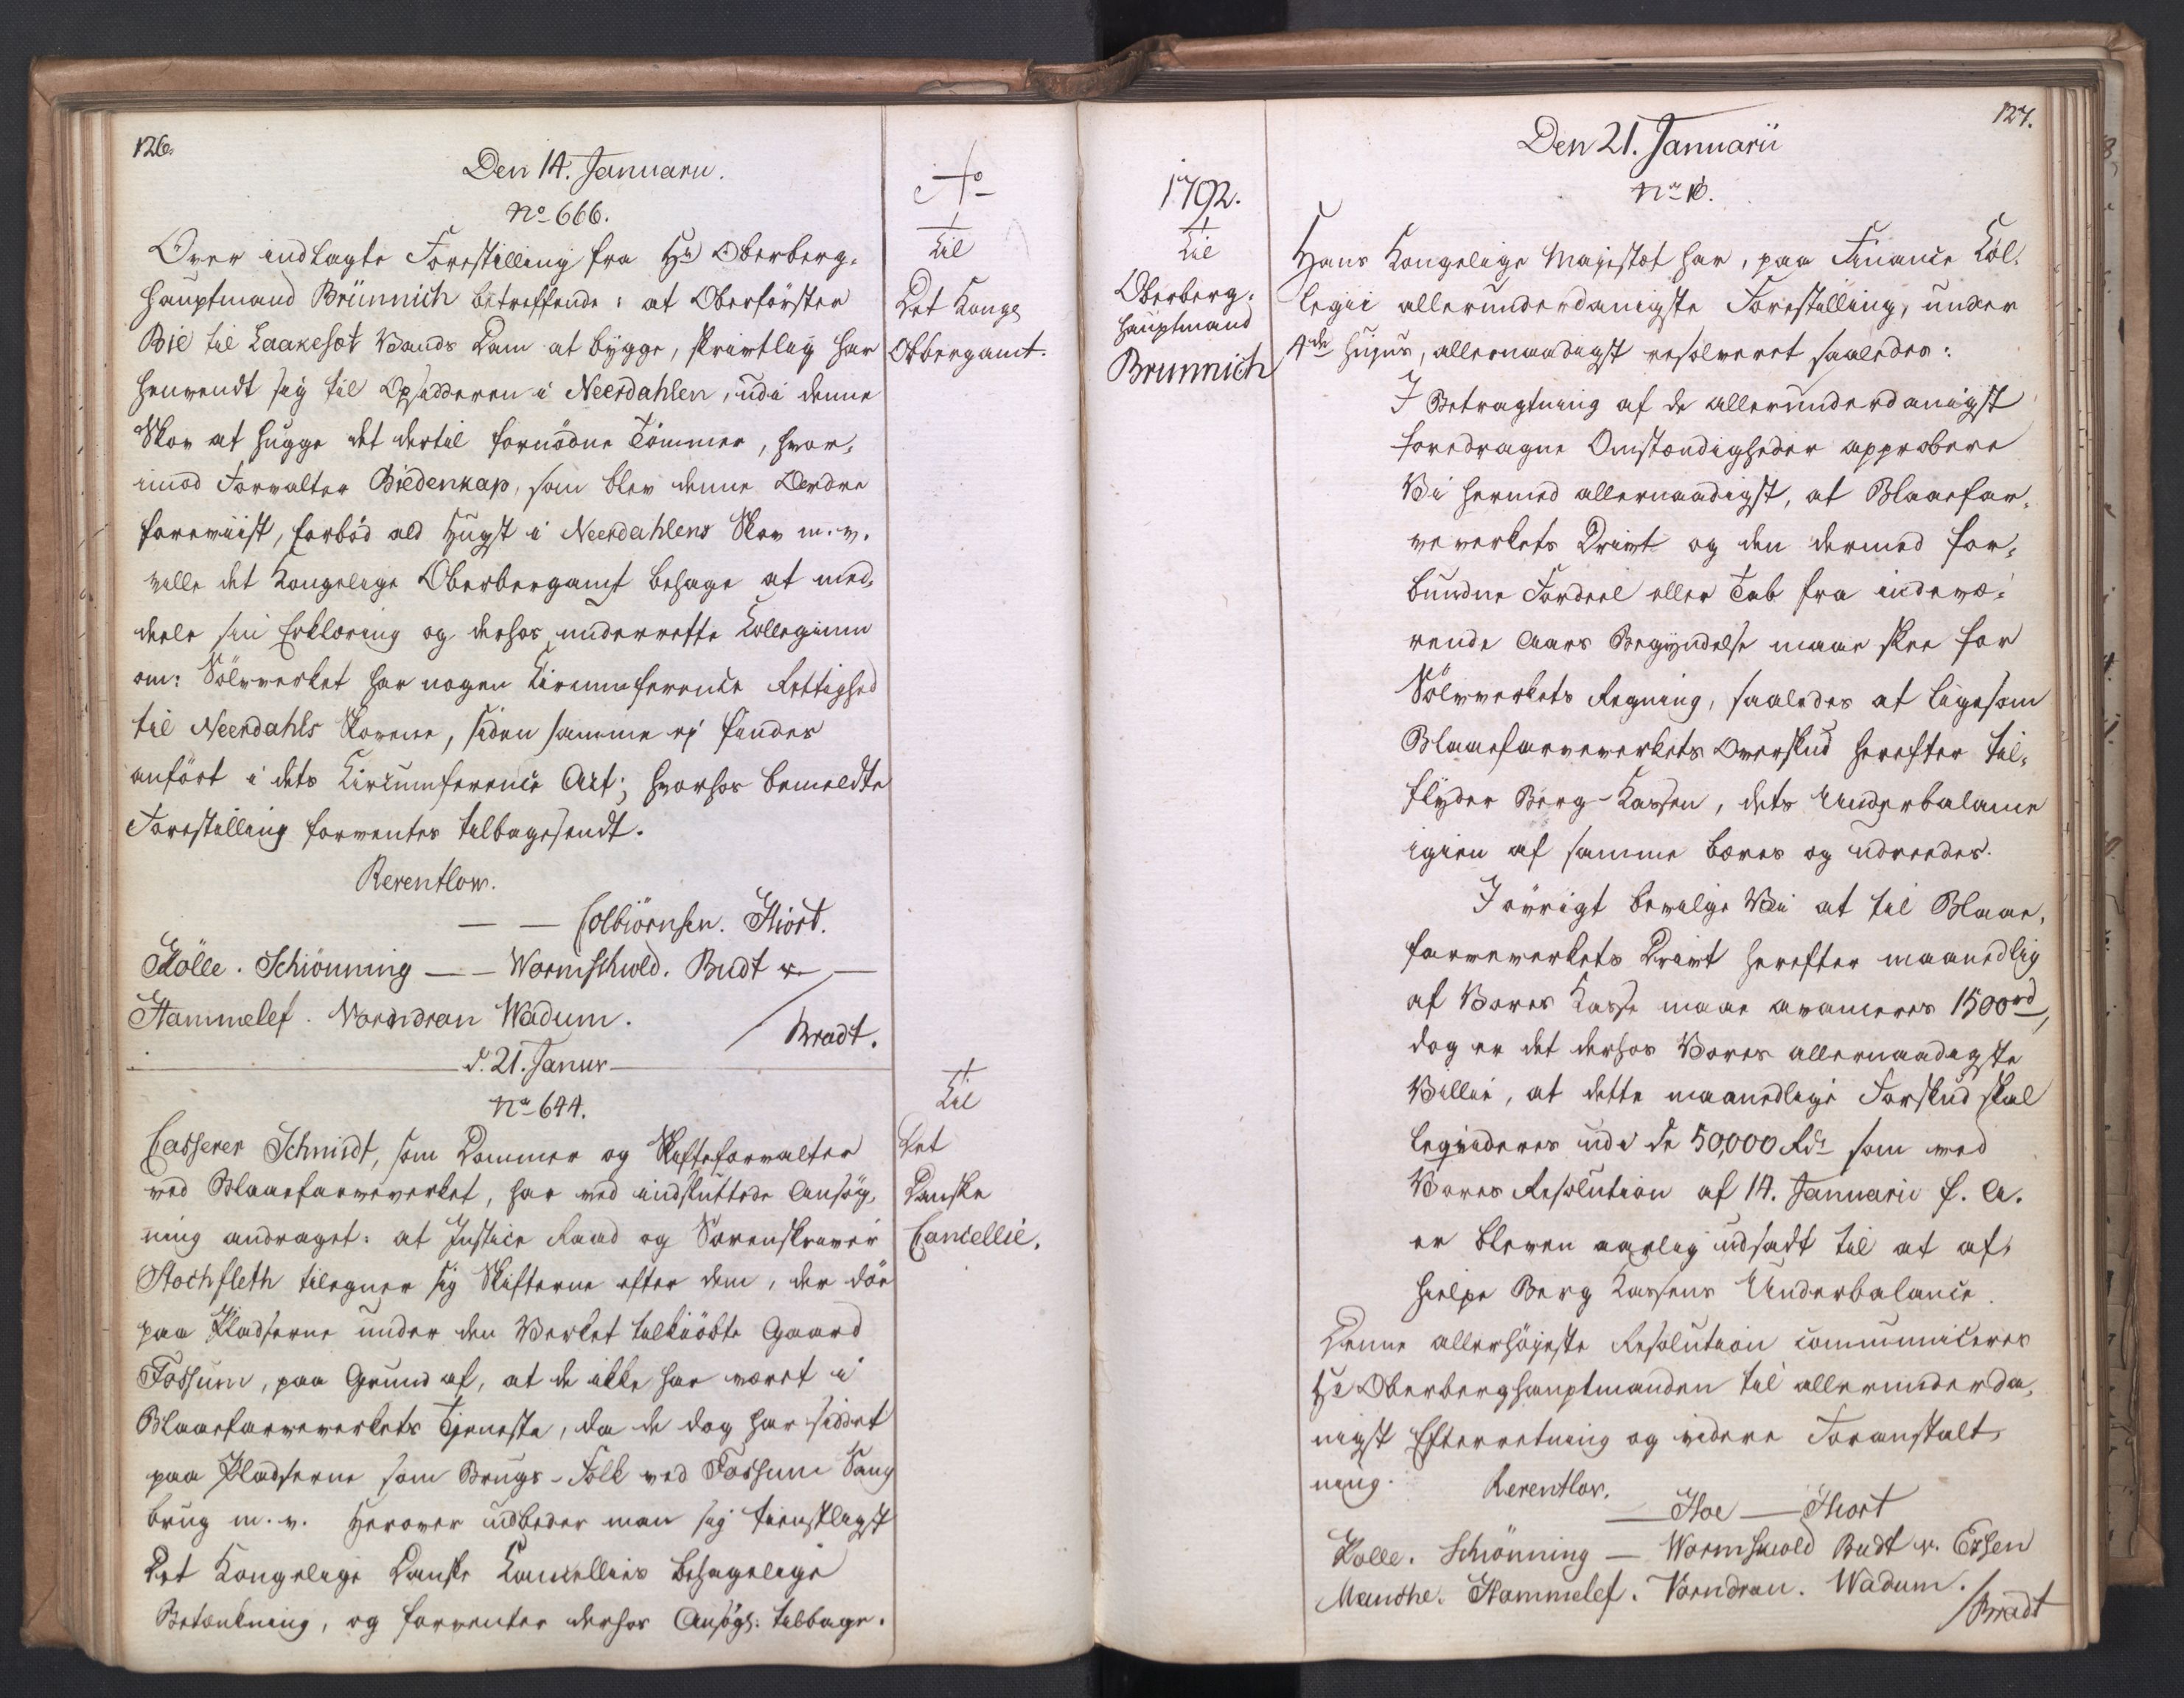 126.
Den 14. Januarii.
No 666.
Over indlagte Forestilling fra Hr Oberberg-
hauptmand Brünnich betreffende: at Oberförster
Bie til Laakesøt Vands Dam at bygge, skrivtlig har
henvendt sig til Opsidderen i Neerdahlen, udi denne
Skov at hugge det dertil fornödne Tömmer, hvor-
imod Forvalter Biedenkap, som blev denne Ordre
foreviist, forböd ald Hugst i Neerdahlens Skov m. v.
ville det Kongelige Oberbergamt behage at med-
deele sin Erklæring og derhos underrette Collegium
om: Sölvverket har nogen Circumference Rettighed
til Neerdahls Skovene, siden samme ej findes
anfört i dets Circumference Act; hvorhos bemeldte
Forestilling forventes tilbagesendt.
Reventlow.
— — Colbiörnsen. Hiort.
Kölle. Schiönning — — Wormskiold. Budt v. —
Hammelef. Vorndran Wadum.
/Bradt.
d. 21. Janur
No 644.
Casserer Schmidt, som Dommer og Skifteforvalter
ved Blaaefarveverket, har ved indsluttede Ansøg-
ning andraget: at Justice Raad og Sorenskriver
Stochfleth tilegner sig Skifterne efter dem, der döe
paa Pladserne under den Verket tilkiöbte Gaard
Fossum, paa Grund af, at de ikke har været i
Blaaefarveverkets Tjeneste, da de dog har siddet
paa Pladserne som Brugs-Folk ved Fossum Saug
brug m. v. Herover udbeder man sig tienstligst
Det Kongelige Danske Cancellies behagelige
Betænkning, og forventer derhos Ansögn: tilbage.
Ao
Til
Det Konge
Obbergamt.
Til
Det
Danske
Cancellie.
1792.
Til
Oberberg-
hauptmand
Brunnich
127.
Den 21. Januarii
No 16.
Hans Kongelige Majestæt har, paa Finance Col-
legii allerunderdanigste Forestilling, under
4de hujus, allernaadigst resolveret saaledes:
I Betragtning af de allerunderdanigst
foredragne Omstændigheder approbere
Vi hermed allernaadigst, at Blaaefar-
veverkets Drivt og den dermed for-
bundne Fordeel eller Tab fra indevæ-
rende Aars Begyndelse maae skee for
Sölvverkets Regning, saaledes at ligesom
Blaaefarveverkets Overskud herefter til-
flyder Berg-Kassen, dets Underbalance
igien af samme bæres og udreedes.
I övrigt bevilge Vi at til Blaae-
farveverkets Drivt herefter maanedlig
af Vores Kasse maae avanceres 1500rd,
dog er det derhos Vores allernaadigste
Villie, at dette maanedlige Forskud skal
liqvideres udi de 50,000 Rdr som ved
Vores Resolution af 14. Januarii f. A.
er bleven aarlig udsadt til at af-
hielpe Berg Kassens Underbalance.
Denne allerhöjeste Resolution communiceres
Hr Oberberghauptmanden til allerunderda-
nigst Efterretning og videre Foranstalt-
ning.
Reventlow.
— Hoe — Hiort
Kölle. Schiönning — Wormskiold Budt v. Essen
Manthe. Hammelef. Vorndran. Wadum.
/Bradt